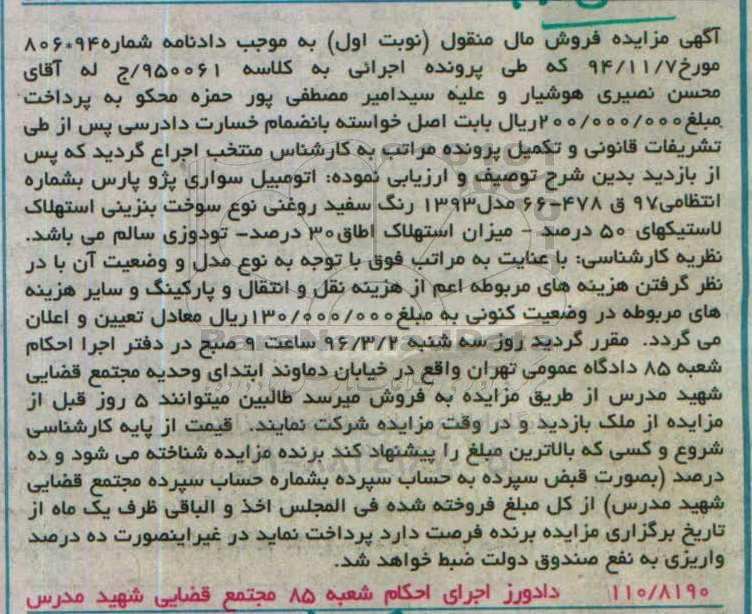 آگهی مزایده فروش مال منقول (نوبت اول) به موجب دادنامه شماره۹۴۰۸۰۶
مورخ۹۴/۱۱/۷ که طی پرونده اجرائی به کلاسه ۹۵۰۰۶۱/ج له آقای
محسن نصیری هوشیار و علیه سیدامیر مصطفی پور حمزه محکو به پرداخت
مبلغ۲۰۰/۰۰۰/۰۰۰ریال بابت اصل خواسته بانضمام خسارت دادرسی پس از طی
تشریفات قانونی و تکمیل پرونده مراتب به کارشناس منتخب اجراع گردید که پس
از بازدید بدین شرح توصیف و ارزیابی نموده: اتومبیل سواری پژو پارس بشماره
انتظامی۹۷ ق ۴۷۸-۶۶ مدل۱۳۹۳ رنگ سفید روغنی نوع سوخت بنزینی استهلاک
لاستیکهای ۵۰ درصد - میزان استهلاک اطاق۳۰ درصد- تودوزی سالم می باشد.
نظریه کارشناسی: با عنایت به مراتب فوق با توجه به نوع مدل و وضعیت آن با در
نظر گرفتن هزینه های مربوطه اعم از هزینه نقل و انتقال و پارکینگ و سایر هزینه
های مربوطه در وضعیت کنونی به مبلغ۱۳۰/۰۰۰/۰۰۰ریال معادل تعیین و اعلان
می گردد. مقرر گردید روز سه شنبه ۹۶/۳/۲ ساعت ۹ صبح در دفتر اجرا احکام
شعبه ۸۵ دادگاه عمومی تهران واقع در خیابان دماوند ابتدای وحدیه مجتمع قضایی
شهید مدرس از طریق مزایده به فروش میرسد طالبین میتوانند ۵ روز قبل از
مزایده از ملک بازدید و در وقت مزایده شرکت نمایند. قیمت از پایه کارشناسی
شروع و کسی که بالاترین مبلغ را پیشنهاد کند برنده مزایده شناخته می شود و ده
درصد (بصورت قبض سپرده به حساب سپرده بشماره حساب سپرده مجتمع قضایی
شهید مدرس) از کل مبلغ فروخته شده فی المجلس اخذ و الباقی ظرف یک ماه از
تاریخ برگزاری مزایده برنده فرصت دارد پرداخت نماید در غیراینصورت ده درصد
واریزی به نفع صندوق دولت ضبط خواهد شد.
۱۱۰/۸۱۹۰ دادورز اجرای احکام شعبه ۸۵ مجتمع قضایی شهید مدرس